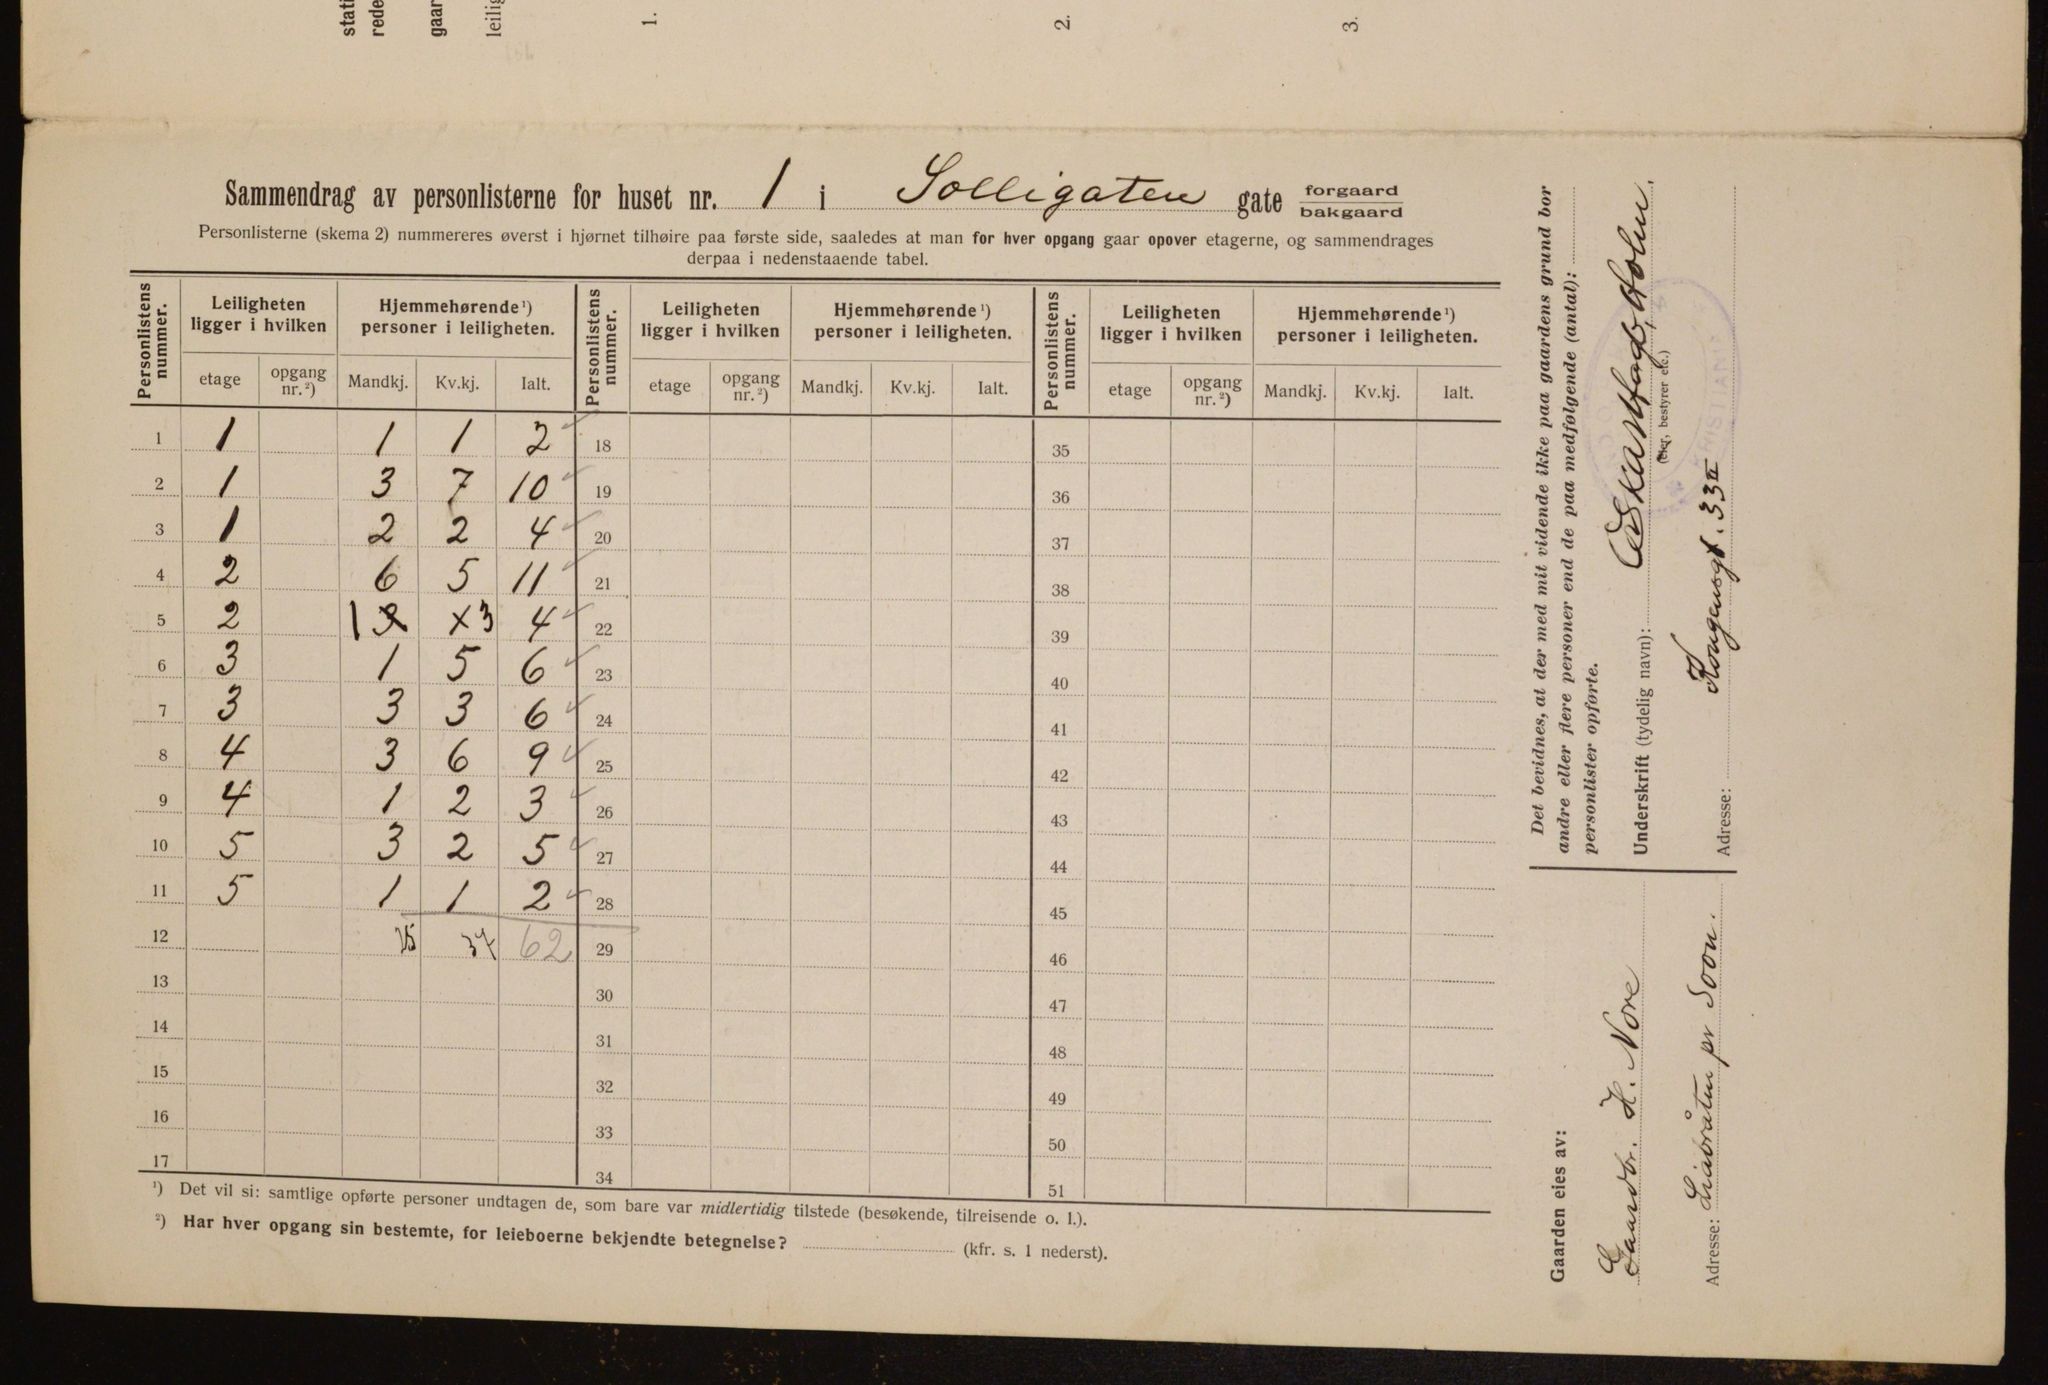 stati
rede
gaar
leilig
1.
2.
3.
Sammendrag av personlisterne for huset nr. 1 i Solligaten gate forgaard
bakgaard
Personlisterne (skema 2) nummereres øverst i hjørnet tilhøire paa første side, saaledes at man for hver opgang gaar opover etagerne, og sammendrages
derpaa i nedenstaaende tabel.
Personlistens nummer. Leiligheten ligger i hvilken Hjemmehørende ¹) personer i leiligheten. Personlistens nummer. Leiligheten ligger i hvilken Hjemmehørende ¹) personer i leiligheten. Personlistens nummer. Leiligheten ligger i hvilken Hjemmehørende ¹) personer i leiligheten.
etage opgang nr. ²) Mandkj. Kv.kj. Ialt. etage opgang nr. ²) Mandkj. Kv.kj. Ialt. etage opgang nr. ²) Mandkj. Kv.kj. Ialt.
1 1 1 1 2 18 35
2 1 3 7 10 19 36
3 1 2 2 4 20 37
4 2 6 5 11 21 38
5 2 1 3 4 22 39
6 3 1 5 6 23 40
7 3 3 3 6 24 41
8 4 3 6 9 25 42
9 4 1 2 3 26 43
10 5 3 2 5 27 44
11 5 1 1 2 28 45
12 25 37 62 29 46
13 30 47
14 31 48
15 32 49
16 33 50
17 34 51
¹) Det vil si: samtlige opførte personer undtagen de, som bare var midlertidig tilstede (besøkende, tilreisende o. l.).
²) Har hver opgang sin bestemte, for leieboerne bekjendte betegnelse? (kfr. s. 1 nederst).
Det bevidnes, at der med mit vidende ikke paa gaardens grund bor
andre eller flere personer end de paa medfølgende (antal):
personlister opførte.
Underskrift (tydelig navn):
(eier, bestyrer etc.)
Adresse: Kongensgt. 33 II
Gaarden eies av:
Gaardbr. H. Nore
Adresse: Liabråten pr Soon.